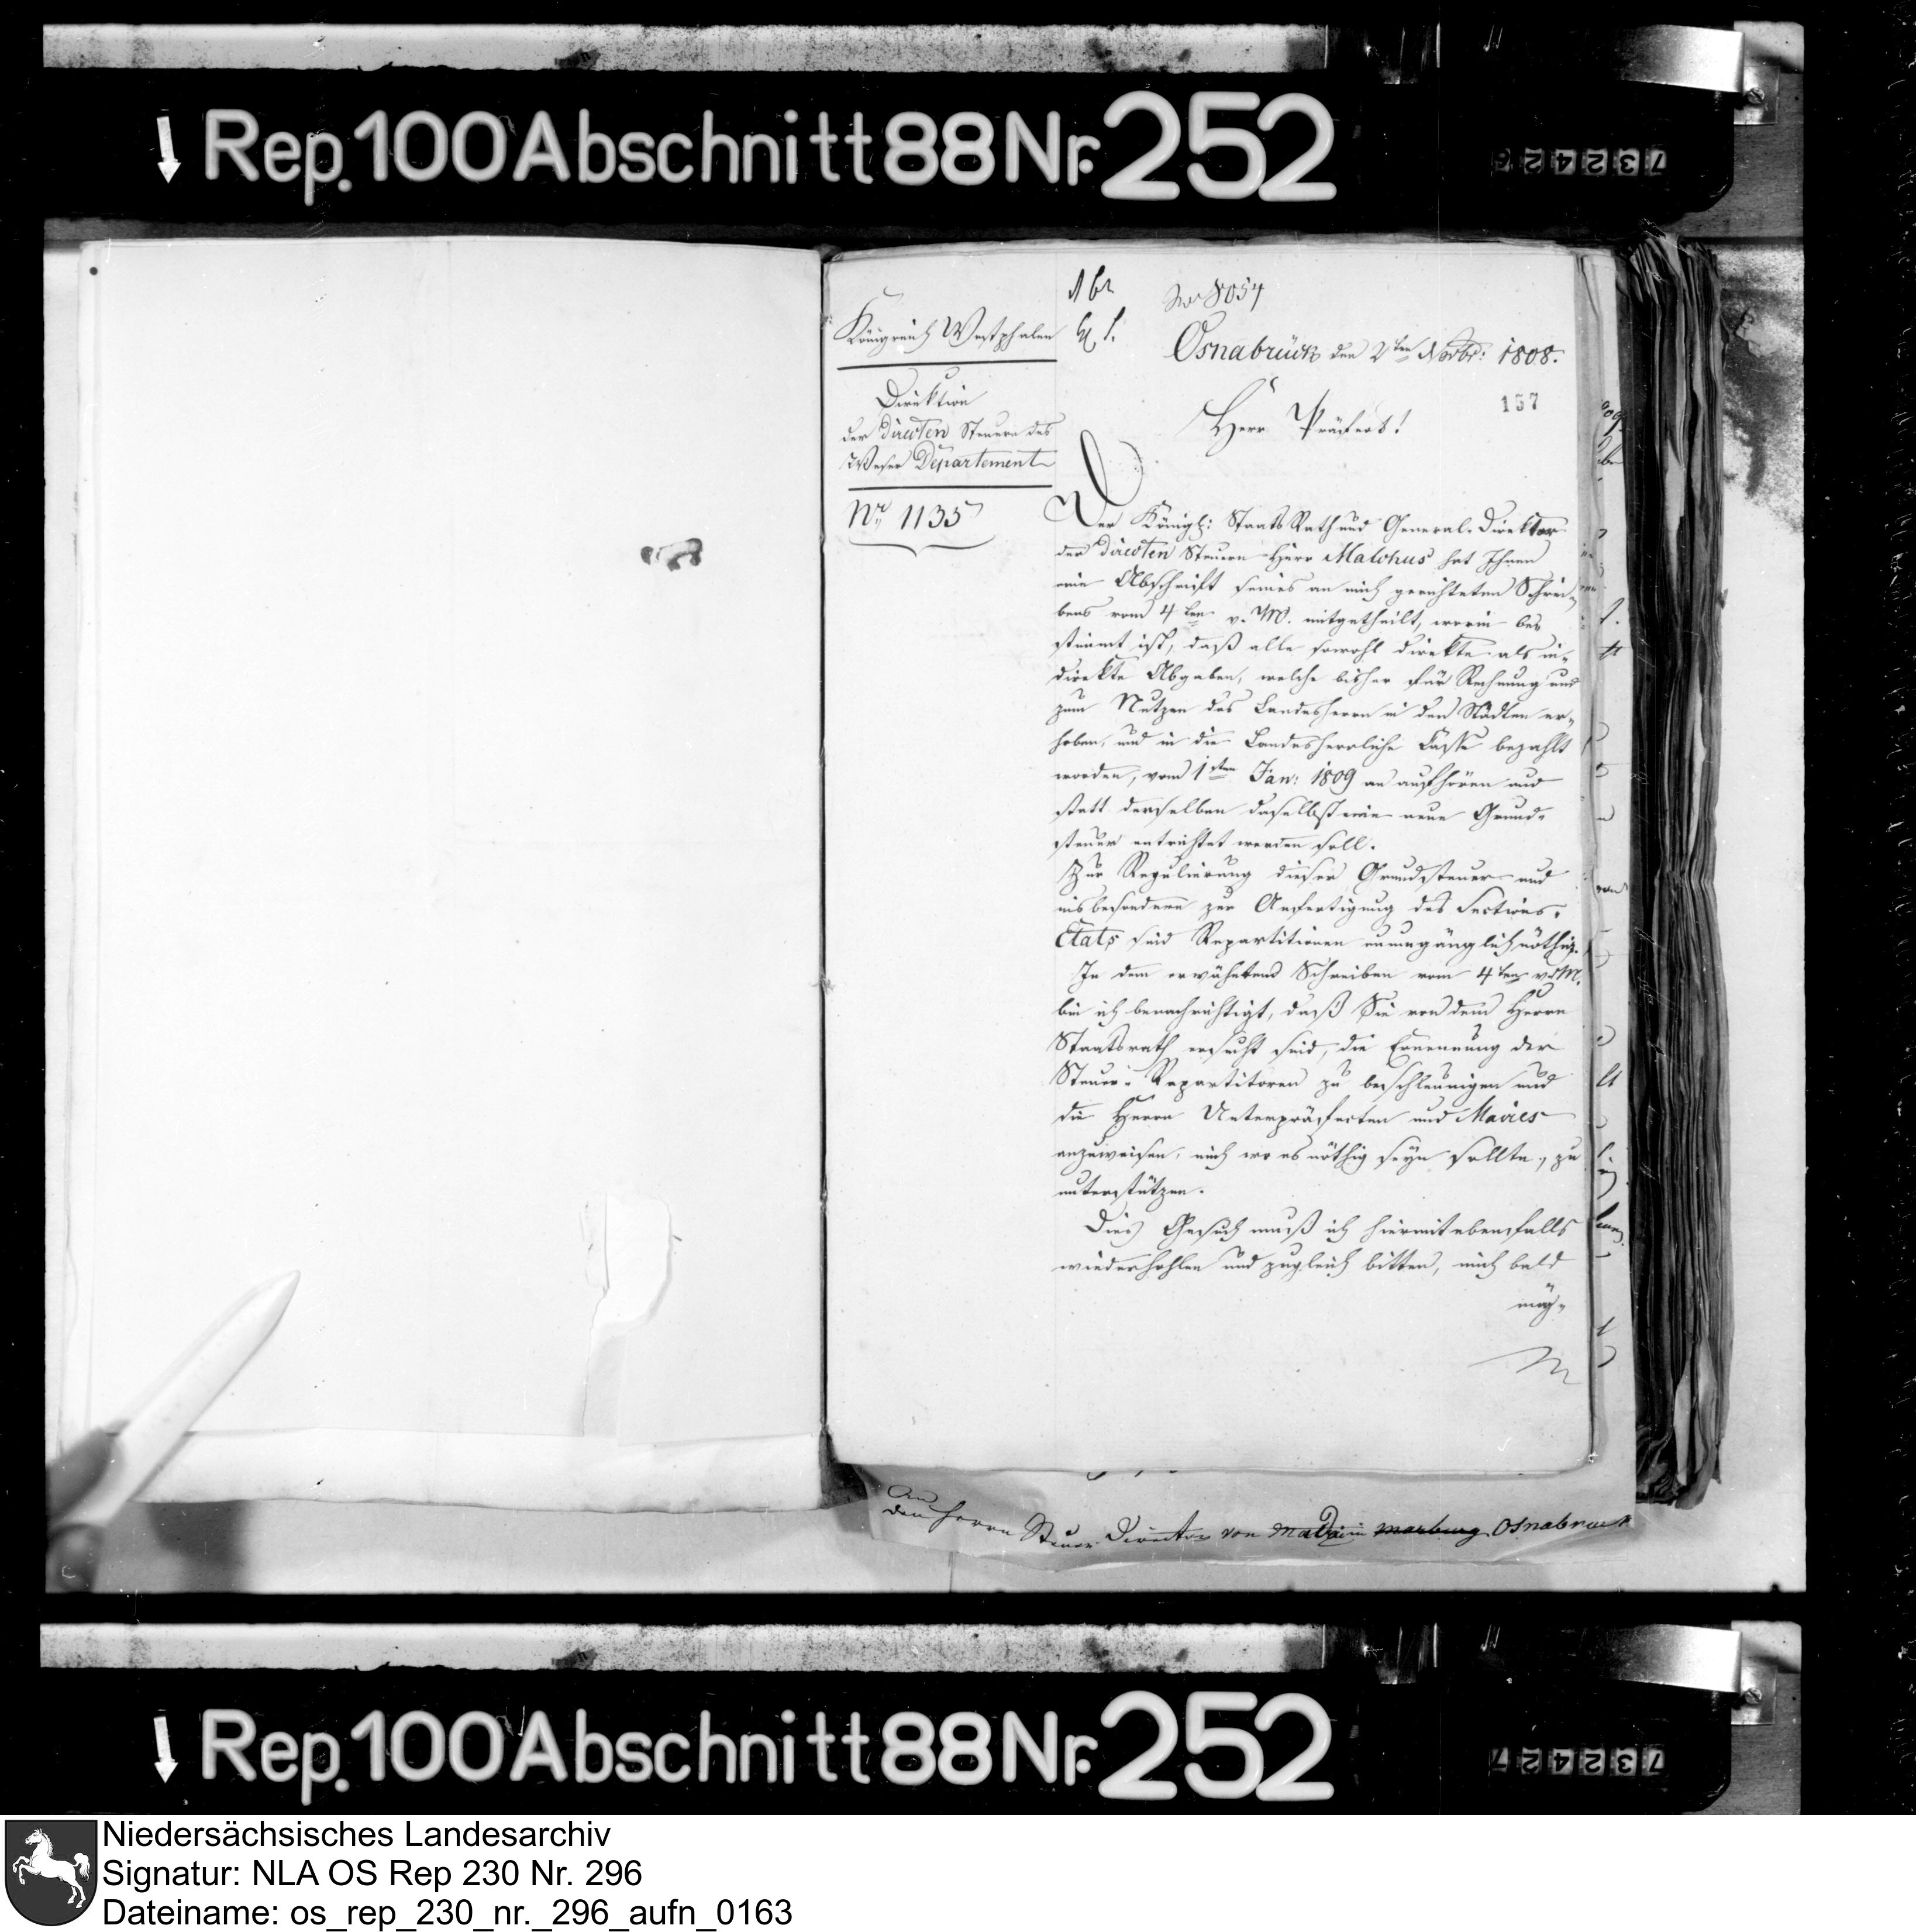 Rep. 100 Abschnitt 88 Nr. 252
732426
Nro 8054
Königreich Westphalen
Osnabrück den 2ten Novbr: 1808.
157
Direktion
der directen Steuern des
Weser Departement
Nr. 1135
Herr Präfect!
Der Königl: Staats Rath und General-Direktor
der directen Steuern Herr Malchus hat Ihnen
eine Abschrift seines an mich gerichteten Schrei-
bens vom 4ten v. M. mitgetheilt, worin be-
stimmt ist, daß alle sowohl direkte als in-
direkte Abgaben, welche bisher für Rechnung und
zum Nutzen des Landesherrn in den Städten er-
hoben, und in die Landesherrliche Casse bezahlt
worden, vom 1sten Jan: 1809 an aufhören und
statt derselben daselbst eine neue Grund-
steuer entrichtet werden soll.
Zur Regulierung dieser Grundsteuer und
insbesondere zur Anfertigung des Sections-
Etats sind Repartitionen unumgänglich nöthig.
In dem erwähnten Schreiben vom 4ten v. M.
bin ich benachrichtigt, daß Sie von dem Herrn
Staatsrath ersucht sind, die Ernennung der
Steuer-Repartitoren zu beschleunigen und
die Herrn Unterpräfecten und Maires
anzuweisen, mich wo es nöthig seyn sollte, zu
unterstützen.
Dies Gesuch muß ich hiermit ebenfalls
wiederhohlen und zugleich bitten, mich bald
mög-
An
den Herrn Steuer Director von Marburg Osnabrück
Rep. 100 Abschnitt 88 Nr. 252
732427
Niedersächsisches Landesarchiv
Signatur: NLA OS Rep 230 Nr. 296
Dateiname: os_rep_230_nr._296_aufn_0163